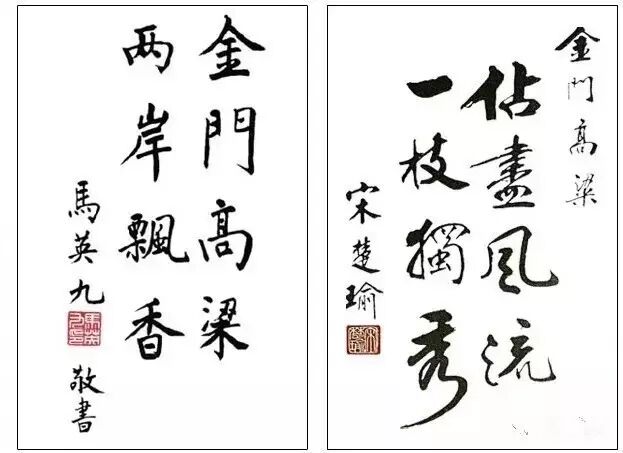 金門高梁
两岸飄香
馬英九 敬書
金門高粱
佔盡风流
一枝獨秀
宋楚瑜